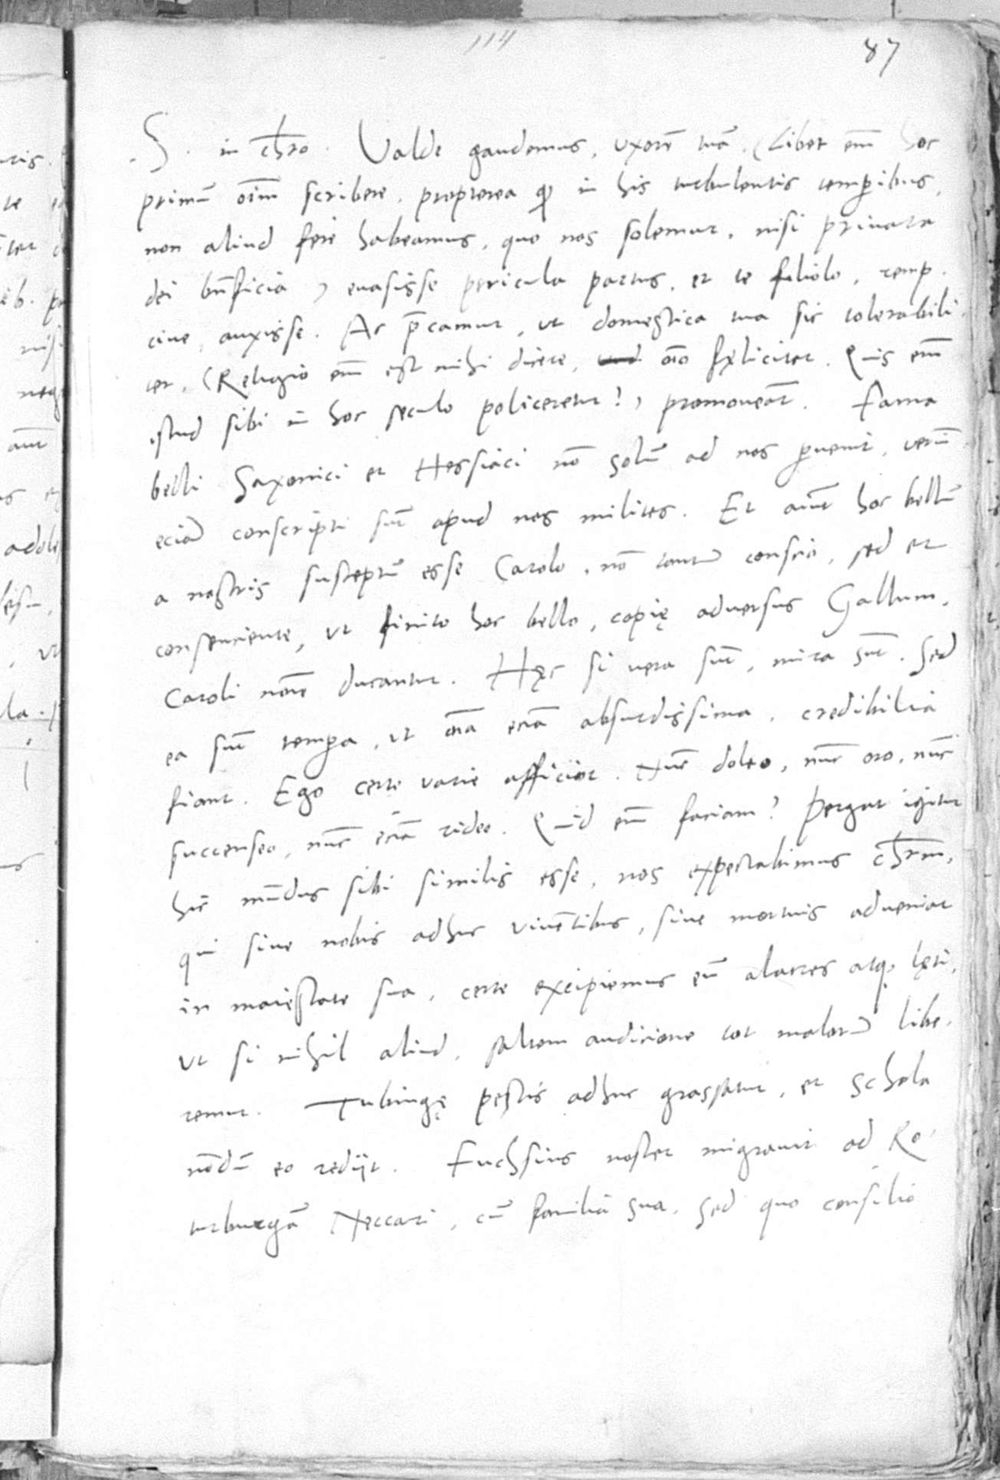 114
87
S. in chro. Valde gaudemus, vxorē tuā (Libet em̄ hoc
primū oīm scribere, propterea qđ in his turbulentis temꝑibus,
non aliud fere habeamus, quo nos solemur, nisi priuata
dei bn̄ficia) euasisse pericula partus, et te filiolo,
ciue, auxisse. Ac p̄camur, vt domestica tua sic tolerabili
ter, (Religio em̄ est mihi dicere, oīo fęliciter. Quis em̄
istud sibi in hoc seculo policeretur?) promoueāt. Fama
belli Saxonici et Hessiaci nō solū ad nos ꝑuenit, verū
eciā conscripti sūt apud nos milites. Et aiūt hoc bellū
a nostris susceptū esse Carolo, nō tantū conscio, sed et
consenciente, vt finito hoc bello, copię aduersus Gallum,
Caroli noīe ducantur. Hęc si vera sūt, mira sūt. Sed
ea sūt tempa, vt oīa eciā absurdissima, credibilia
fiant. Ego certe varie afficior. Nūc doleo, nūc oro, nūc
succenseo, nūc eciā rideo. Quid em̄ faciam? Pergat igitur
hic mūdus sibi similis esse, nos expectabimus chrm̄,
qui siue nobis adhuc viuētibus, siue mortuis adueniat
in maiestate sua, certe excipiemus eū alacres atqꝫ lęti,
vt si nihil aliud, saltem audicione tot malorū libe-
remur. Tubingę pestis adhuc grassatur, et schola
nōdū eo redijt. Fuchsius noster migrauit ad Ro-
turburgā Neccari, cū familia sua, sed quo consilio